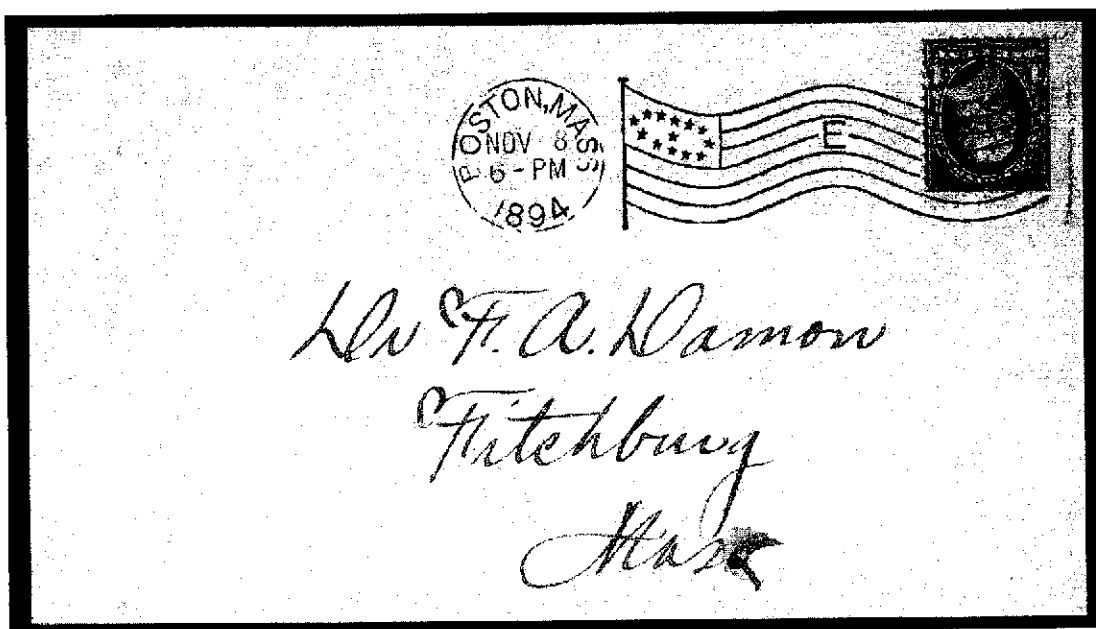 BOSTON, MASS
NOV 8
6-PM
1894
E
Dr F. A. Damon
Fitchburg
Mass